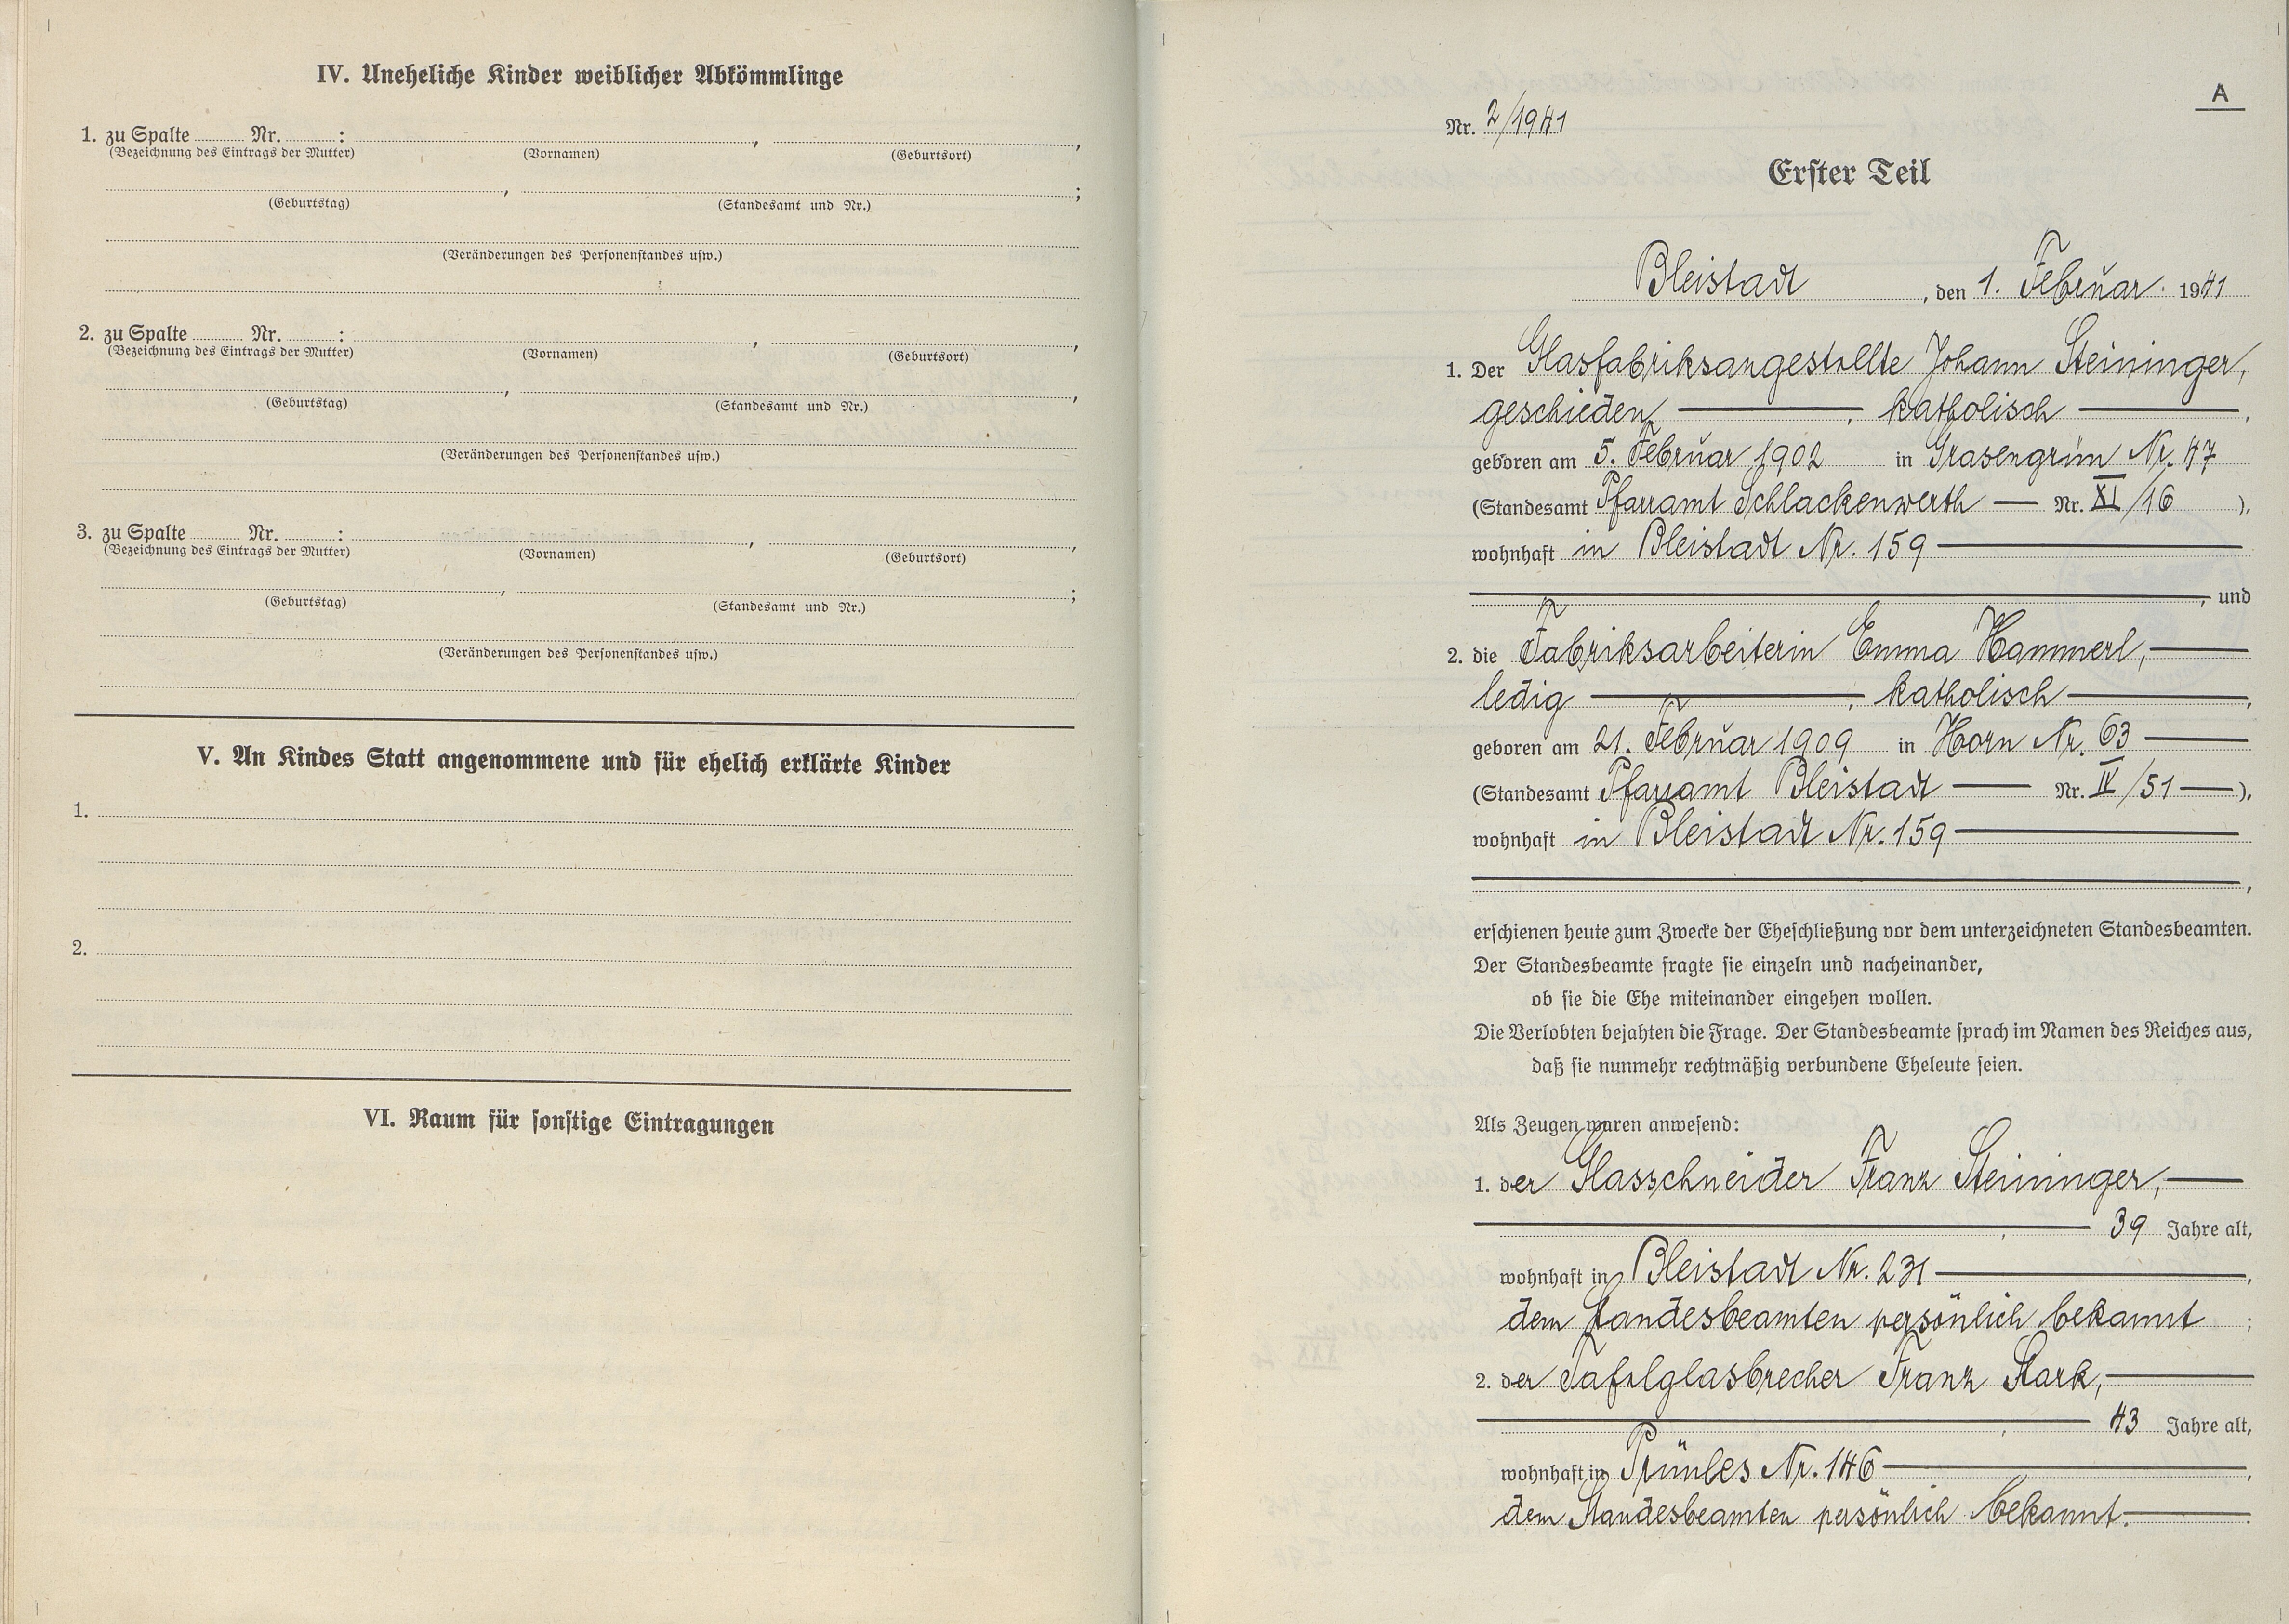 IV. Uneheliche Kinder weiblicher Abkömmlinge
1. zu Spalte Nr. : , ,
(Bezeichnung des Eintrags der Mutter) (Vornamen) (Geburtsort)
, ;
(Geburtstag) (Standesamt und Nr.)
(Veränderungen des Personenstandes usw.)
2. zu Spalte Nr. : , ,
(Bezeichnung des Eintrags der Mutter) (Vornamen) (Geburtsort)
, ,
(Geburtstag) (Standesamt und Nr.)
(Veränderungen des Personenstandes usw.)
3. zu Spalte Nr. : , ,
(Bezeichnung des Eintrags der Mutter) (Vornamen) (Geburtsort)
, ;
(Geburtstag) (Standesamt und Nr.)
(Veränderungen des Personenstandes usw.)
V. An Kindes Statt angenommene und für ehelich erklärte Kinder
1.
2.
VI. Raum für sonstige Eintragungen
A
Nr. 2/1941
Erster Teil
Bleistadt, den 1. Februar 1941
1. Der Glasfabriksangestellte Johann Steininger,
geschieden, katholisch,
geboren am 5. Februar 1902 in Grasengrün Nr. 47
(Standesamt Pfarramt Schlackenwerth — Nr. XI/16),
wohnhaft in Bleistadt Nr. 159 —
, und
2. die Fabriksarbeiterin Emma Hammerl, —
ledig —, katholisch —,
geboren am 21. Februar 1909 in Horn Nr. 63 —
(Standesamt Pfarramt Bleistadt — Nr. IV/51 —),
wohnhaft in Bleistadt Nr. 159 —
,
erschienen heute zum Zwecke der Eheschließung vor dem unterzeichneten Standesbeamten.
Der Standesbeamte fragte sie einzeln und nacheinander,
ob sie die Ehe miteinander eingehen wollen.
Die Verlobten bejahten die Frage. Der Standesbeamte sprach im Namen des Reiches aus,
daß sie nunmehr rechtmäßig verbundene Eheleute seien.
Als Zeugen waren anwesend:
1. der Glasschneider Franz Steininger, —
39 Jahre alt,
wohnhaft in Bleistadt Nr. 231 —,
dem Standesbeamten persönlich bekannt ;
2. der Tafelglasbrecher Franz Stark, —
43 Jahre alt,
wohnhaft in Prünles Nr. 146 —,
dem Standesbeamten persönlich bekannt. —